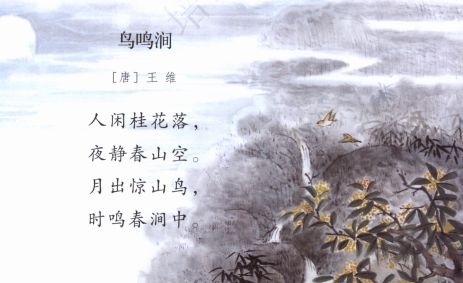 鸟鸣涧
［唐］王 维
人闲桂花落，
夜静春山空。
月出惊山鸟，
时鸣春涧中。